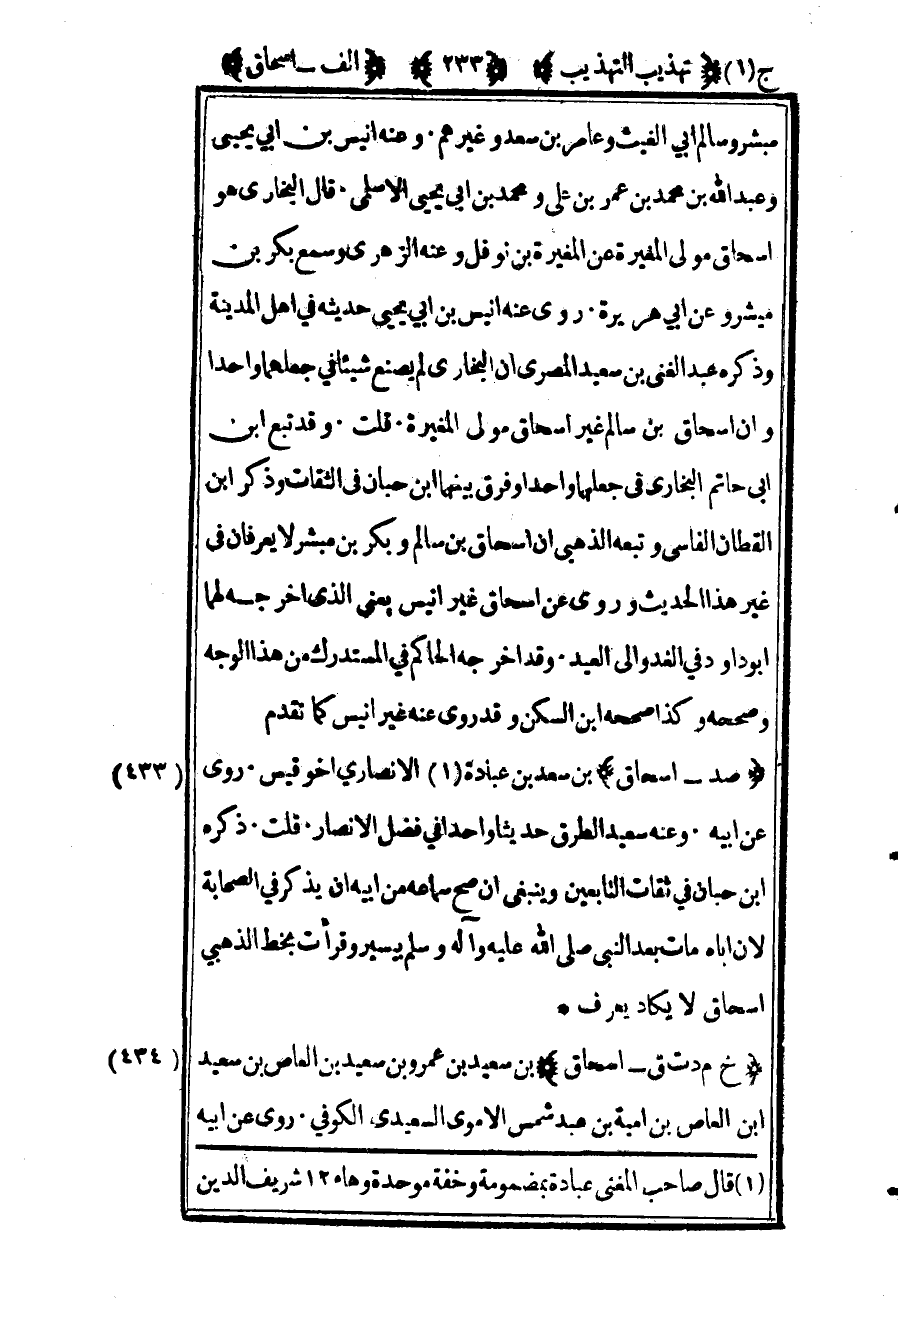 ج(١) ﴿ تهذيب التهذيب ﴾ ﴿٢٣٣﴾ ﴿ الف ــ اسحاق ﴾
مبشر وسالم ابي الغيث وعامر بن سعد وغيرهم · وعنه انيس بن ابي يحيى
وعبد الله بن محمد بن عمر بن على و محمد بن ابى يحيى الاسلمى · قال البخارى هو
اسحاق مولى المغيرة عن المغيرة بن نوفل وعنه الزهرى وسمع بكر بن
مبشر و عن ابي هريرة · روى عنه انيس بن ابي يحيى حديثه في اهل المدينة
وذكره عبد الغنى بن سعيد المصرى ان البخارى لم يصنع شيئا في جعلهما واحدا
و ان اسحاق بن سالم غير اسحاق مولى المغيرة · قلت · وقد تبع ابن
ابى حاتم البخارى فى جعلهما واحدا وفرق بينهما ابن حبان فى الثقات وذكر ابن
القطان الفاسى و تبعه الذهبى ان اسحاق بن سالم و بكر بن مبشر لا يعرفان في
غير هذا الحديث و روى عن اسحاق غير انيس يعني الذى اخرجـه لهما
ابوداود في الغدو الى العيد · وقد اخرجه الحاكم في المستدرك من هذا الوجه
وصححه وكذا صححه ابن السكن وقد روى عنه غير انيس كما تقدم
﴿ صد ــ اسحاق ﴾ بن سعد بن عبادة (١) الانصاري اخو قيس · روى (٤٣٣)
عن ابيه · وعنه سعيد الطرق حديثا واحدا في فضل الانصار · قلت · ذكره
ابن حبان في ثقات التابعين وينبغى ان صح سماعه من ابيه ان يذكر في الصحابة
لان اباه مات بعد النبى صلى الله عليه وآله وسلم يسير وقرأت بخط الذهبي
اسحاق لا يكاد يعرف *
﴿ خ م د ت ق ــ اسحاق ﴾ بن سعيد بن عمرو بن سعيد بن العاص بن سعيد (٤٣٤)
ابن العاص بن امية بن عبد شمس الاموى السعيدى الكوفي · روى عن ابيه
(١) قال صاحب المغنى عبادة بمضمومة وخفة موحدة وهاء ١٢ شريف الدين